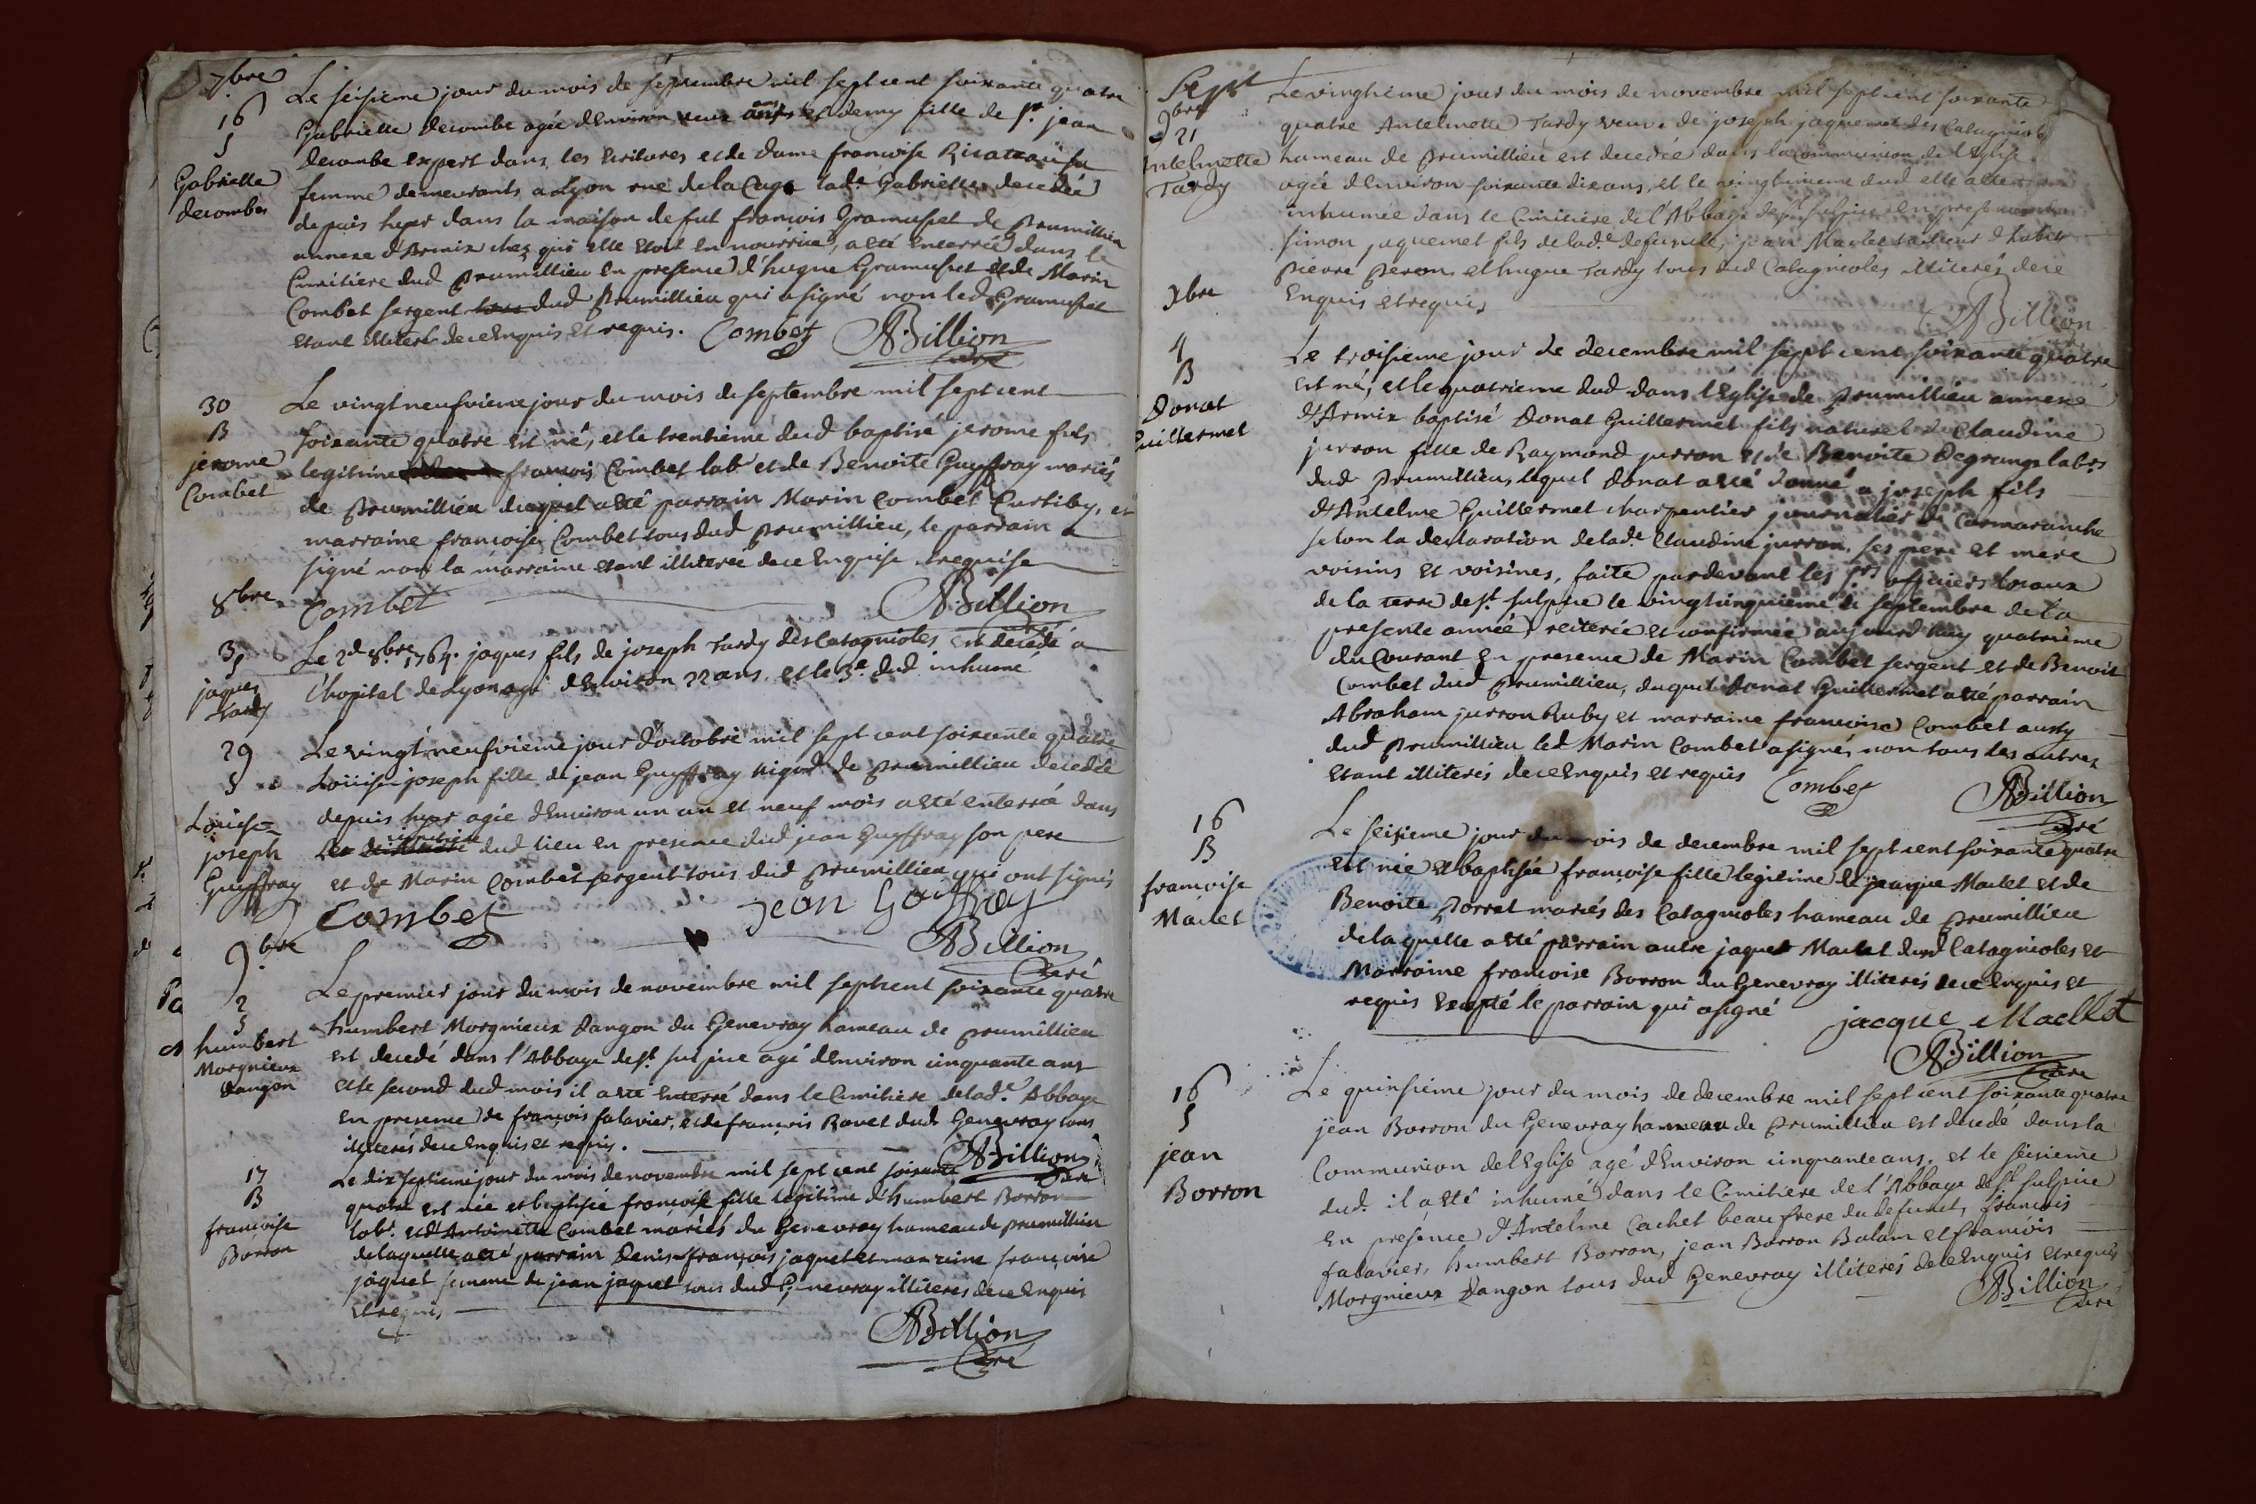 7bre
16
S
Gabrielle
decombe
Le seisieme jour du mois de septembre mil sept cent soixante quatre
Gabrielle decombe agée d'Environ deux ans et demy fille de Sr. jean
decombe expert dans les Ecritures et de dame francoise
femme demeurants a Lyon rue de la Cage lad.e Gabrielle decedée
depuis hyer dans la maison de fut francois Gramusset de prumillieu
annexe d'Armix chez qui elle etoit en nourrice, a eté enterrée dans le
Cimitiere dud prumillieu en presence d'hugue Gramusset et de Marin
Combet sergent dud prumillieu qui a signé non led Gramusset
etant illiteré de ce Enquis et requis. Combet ABillion
curé
30
B
jerome
Combet
Le vingt neufvieme jour du mois de septembre mil sept cent
soixante quatre est né, et le trentieme dud baptisé jerome fils
legitime francois Combet lab.r et de Benoite Guyffray mariés
de prumillieu duquel a eté parrain Marin Combet Curtiby, et
marraine francoise Combet tous dud prumillieu, le parrain a
signé non la marraine etant illiterée de ce Enquise et requise
Combet ABillion
curé
8bre
3
S
jaques
Tardy
Le 2d 8.bre 1764. jaques fils de joseph Tardy des Catagnioles est decedé a
l'hopital de Lyon agé d'Environ 22 ans et le 3.e dud inhumé
29
S
Loüise
joseph
Guyffray
Le vingt neufvieme jour d'octobre mil sept cent soixante quatre
Loüise joseph fille de jean Guyffray nigod de prumillieu decedée
depuis hyer agée d'Environ un an et neuf mois a eté enterrée dans
le cimitiere dud lieu en presence dud jean Guyffray son pere
et de Marin Combet sergent tous dud prumillieu qui ont signés
Combet jean Goiffray
ABillion
Curé
9.bre
2
S
humbert
Morgnieux
dangon
Le premier jour du mois de novembre mil sept cent soixante quatre
humbert Morgnieux dangon du Genevray hameau de prumillieu
est decedé dans l'Abbaye de St. sulpice agé d'Environ cinquante ans
et le second dud mois il a eté Enterré dans le Cimitiere de lad.e Abbaye
En presence de francois falavier, et de francois Ravet dud Genevray tous
illiterés de ce Enquis et requis.
ABillion
Curé
17
B
francoise
Borron
Le dix septieme jour du mois de novembre mil sept cent soixante
quatre est née et baptisée francoise fille legitime d'humbert Borron
lab.r et d'Antoinette Combet mariés du Genevray hameau de prumillieu
de laquelle a eté parrain Denis francois jaquet et marraine francoise
jaquet femme de jean jaquet tous dud Genevray illiterés de ce Enquis
et requis
ABillion
Curé
Sept
9bre
21
S
Antelmette
Tardy
Le vingtieme jour du mois de novembre mil sept cent soixante
quatre Antelmette Tardy veuve de joseph jaquemet des Catagnioles
hameau de prumillieu est decedée dans la Communion de l'Eglise
agée d'Environ soixante dix ans, et le vingtunieme dud elle a eté
inhumée dans le Cimitiere de l'Abbaye de St. sulpice en presence de
simon jaquemet fils de lad.e defunte, jean Maclet tailleur d'habits
pierre peron et hugue Tardy tous dud Catagnioles illiterés de ce
Enquis et requis
ABillion
Xbre
4
B
Donat
Guillermet
Le troisieme jour de decembre mil sept cent soixante quatre
est né, et le quatrieme dud dans l'Eglise de prumillieu annexe
d'Armix baptisé Donat Guillermet fils naturel de Claudine
jurron fille de Raymond jurron et de Benoite Degrange lab.rs
dud prumillieu, lequel donat a eté donné a joseph fils
d'Antelme Guillermet charpentier journalier de Cormaranche
selon la declaration de lad.e Claudine jurron, ses pere et mere
voisins et voisines, faite pardevant les Srs officiers locaux
de la terre de St. sulpice le vingt cinquieme de septembre de la
presente année, reiterée et confirmée aujourd'huy quatrieme
du Courant en presence de Marin Combet sergent et de Benoit
Combet dud prumillieu, duquel Donat Guillermet a eté parrain
Abraham jurron Ruby et marraine francoise Combet aussy
dud prumillieu led Marin Combet a signé, non tous les autres
etant illiterés de ce Enquis et requis Combet ABillion
Curé
16
B
francoise
Maclet
Le seisieme jour du mois de decembre mil sept cent soixante quatre
est née et baptisée francoise fille legitime de jacque Maclet et de
Benoite porret mariés des Catagnioles hameau de prumillieu
de laquelle a eté parrain autre jaque Maclet dud Catagnioles et
Marraine francoise Borron du Genevray illiterés de ce Enquis et
requis Excepté le parrain qui a signé jacque Macllet
ABillion
Curé
16
S
jean
Borron
Le quinsieme jour du mois de decembre mil sept cent soixante quatre
jean Borron du Genevray hameau de prumillieu est decedé dans la
Communion de l'Eglise agé d'Environ cinquante ans, et le seisieme
dud. il a eté inhumé dans le Cimitiere de l'Abbaye de St. sulpice
en présence d'Antelme Cachet beaufrere du defunt, francois
falavier, humbert Borron, jean Borron Balam et francois
Morgnieux Dangon tous dud Genevray illiterés de ce Enquis et requis
ABillion
Curé